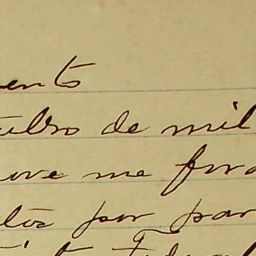 ento
tubro de mil
ove me fora
tos por par